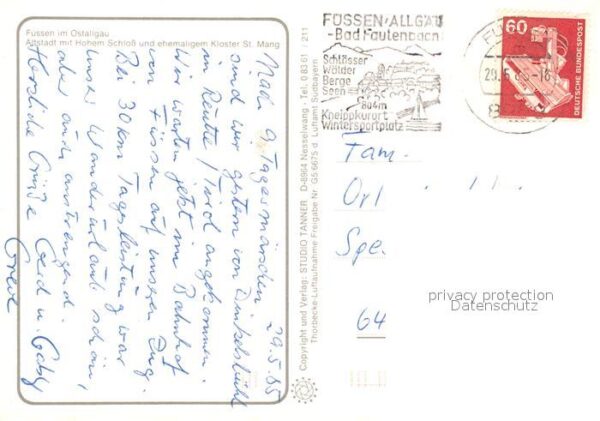 Füssen im Ostallgäu
Altstadt mit Hohem Schloß und ehemaligem Kloster St. Mang
29.5.85
Nach 9 Tagesmärschen
sind wir gestern von Dinkelsbühl
in Reutte/Tirol angekommen.
Wir warten jetzt im Bahnhof
von Füssen auf unseren Zug.
Bei 30 km Tagesleistung war
unser Wanderurlaub schön,
aber auch anstrengend.
Herzliche Grüße Gerd u. Gaby
Copyright und Verlag: STUDIO TANNER D-8964 Nesselwang · Tel. 0 83 61 / 211
Thorbecke-Luftaufnahme Freigabe Nr. G5/6675 d Luftamt Südbayern
FÜSSEN/ALLGÄU
-Bad Faulenbach
Schlösser
Wälder
Berge
Seen
804m
Kneippkurort
Wintersportplatz
60
DEUTSCHE BUNDESPOST
Fam.
Ort
Spe.
64
privacy protection
Datenschutz